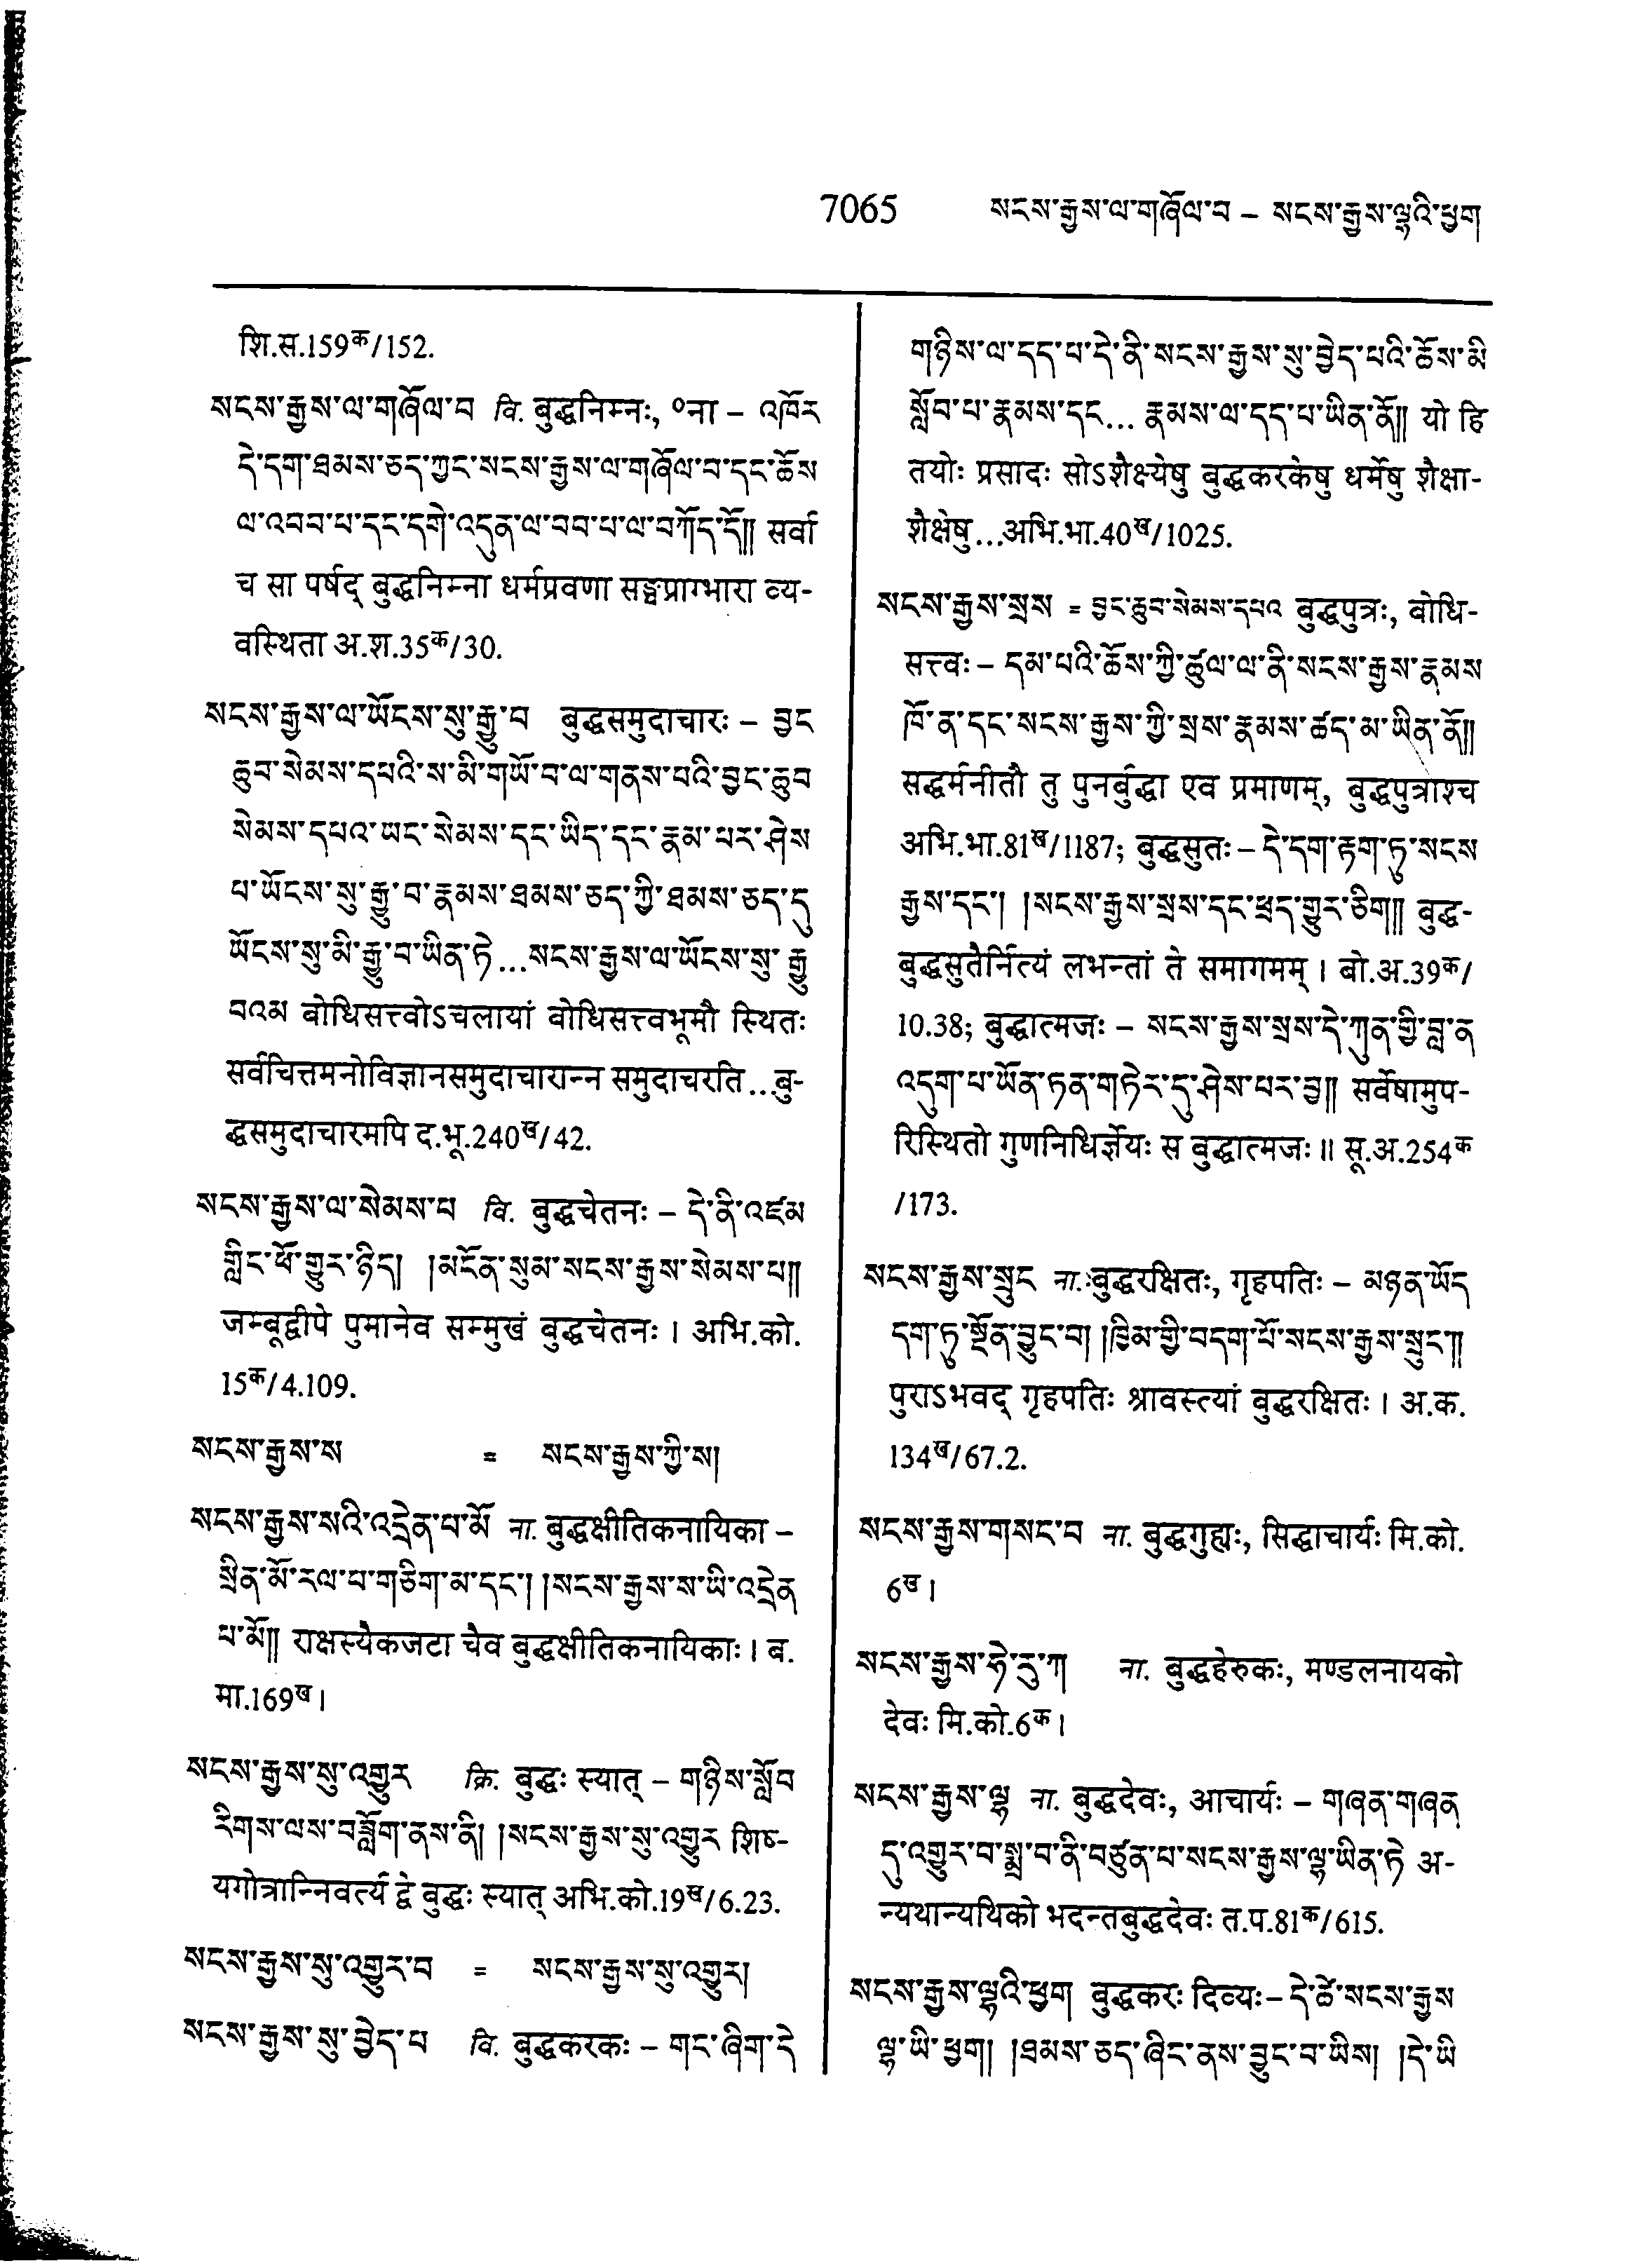 7065 སངས་རྒྱས་ལ་གཞོལ་བ – སངས་རྒྱས་ལྷའི་ཕྱག
शि.स.159क/152.
སངས་རྒྱས་ལ་གཞོལ་བ वि. बुद्धनिम्नः, ०ना – འཁོར
དེ་དག་ཐམས་ཅད་ཀྱང་སངས་རྒྱས་ལ་གཞོལ་བ་དང་ཆོས
ལ་འབབ་པ་དང་དགེ་འདུན་ལ་བབ་པ་ལ་བཀོད་དོ།། सर्वा
च सा पर्षद् बुद्धनिम्ना धर्मप्रवणा सङ्घप्राग्भारा व्य-
वस्थिता अ.श.35क/30.
སངས་རྒྱས་ལ་ཡོངས་སུ་རྒྱུ་བ बुद्धसमुदाचारः – བྱང
ཆུབ་སེམས་དཔའི་ས་མི་གཡོ་བ་ལ་གནས་པའི་བྱང་ཆུབ
སེམས་དཔའ་ཡང་སེམས་དང་ཡིད་དང་རྣམ་པར་ཤེས
པ་ཡོངས་སུ་རྒྱུ་བ་རྣམས་ཐམས་ཅད་ཀྱི་ཐམས་ཅད་དུ
ཡོངས་སུ་མི་རྒྱུ་བ་ཡིན་ཏེ...སངས་རྒྱས་ལ་ཡོངས་སུ་ རྒྱུ
བའམ बोधिसत्त्वोऽचलायां बोधिसत्त्वभूमौ स्थितः
सर्वचित्तमनोविज्ञानसमुदाचारान्न समुदाचरति...बु-
द्धसमुदाचारमपि द.भू.240ख/42.
སངས་རྒྱས་ལ་སེམས་པ वि. बुद्धचेतनः – དེ་ནི་འཛམ
གླིང་ཕོ་གྱུར་ཉིད། །མངོན་སུམ་སངས་རྒྱས་སེམས་པ།།
जम्बूद्वीपे पुमानेव सम्मुखं बुद्धचेतनः। अभि.को.
15क/4.109.
སངས་རྒྱས་ས = སངས་རྒྱས་ཀྱི་ས།
སངས་རྒྱས་སའི་འདྲེན་པ་མོ ना. बुद्धक्षीतिकनायिका –
སྲིན་མོ་རལ་པ་གཅིག་མ་དང་། །སངས་རྒྱས་ས་ཡི་འདྲེན
པ་མོ།། राक्षस्यैकजटा चैव बुद्धक्षीतिकनायिकाः। ब.
मा.169ख।
སངས་རྒྱས་སུ་འགྱུར क्रि. बुद्धः स्यात् – གཉིས་སློབ
རིགས་ལས་བཟློག་ནས་ནི། །སངས་རྒྱས་སུ་འགྱུར शिष्-
यगोत्रान्निवर्त्य द्वे बुद्धः स्यात् अभि.को.19ख/6.23.
སངས་རྒྱས་སུ་འགྱུར་བ = སངས་རྒྱས་སུ་འགྱུར།
སངས་རྒྱས་སུ་བྱེད་པ वि. बुद्धकरकः – གང་ཞིག་དེ
གཉིས་ལ་དད་པ་དེ་ནི་སངས་རྒྱས་སུ་བྱེད་པའི་ཆོས་མི
སློབ་པ་རྣམས་དང... རྣམས་ལ་དད་པ་ཡིན་ནོ།། यो हि
तयोः प्रसादः सोऽशैक्ष्येषु बुद्धकरकेषु धर्मेषु शैक्षा-
शैक्षेषु...अभि.भा.40ख/1025.
སངས་རྒྱས་སྲས = བྱང་ཆུབ་སེམས་དཔའ बुद्धपुत्रः, बोधि-
सत्त्वः – དམ་པའི་ཆོས་ཀྱི་ཚུལ་ལ་ནི་སངས་རྒྱས་རྣམས
ཁོ་ན་དང་སངས་རྒྱས་ཀྱི་སྲས་རྣམས་ཚད་མ་ཡིན་ནོ།།
सद्धर्मनीतौ तु पुनर्बुद्धा एव प्रमाणम्, बुद्धपुत्राश्च
अभि.भा.81ख/1187; बुद्धसुतः – དེ་དག་རྟག་ཏུ་སངས
རྒྱས་དང་། །སངས་རྒྱས་སྲས་དང་ཕྲད་གྱུར་ཅིག།། बुद्ध-
बुद्धसुतैर्नित्यं लभन्तां ते समागमम्। बो.अ.39क/
10.38; बुद्धात्मजः – སངས་རྒྱས་སྲས་དེ་ཀུན་གྱི་བླ་ན
འདུག་པ་ཡོན་ཏན་གཏེར་དུ་ཤེས་པར་བྱ།། सर्वेषामुप-
रिस्थितो गुणनिधिर्ज्ञेयः स बुद्धात्मजः॥ सू.अ.254क
/173.
སངས་རྒྱས་སྲུང ना. बुद्धरक्षितः, गृहपतिः – མཉན་ཡོད
དག་ཏུ་སྔོན་བྱུང་བ། །ཁྱིམ་གྱི་བདག་པོ་སངས་རྒྱས་སྲུང་།།
पुराऽभवद् गृहपतिः श्रावस्त्यां बुद्धरक्षितः। अ.क.
134ख/67.2.
སངས་རྒྱས་གསང་བ ना. बुद्धगुह्यः, सिद्धाचार्यः मि.को.
6ख।
སངས་རྒྱས་ཧེ་རུ་ཀ། ना. बुद्धहेरुकः, मण्डलनायको
देवः मि.को.6क।
སངས་རྒྱས་ལྷ ना. बुद्धदेवः, आचार्यः – གཞན་གཞན
དུ་འགྱུར་བ་སྨྲ་བ་ནི་བཙུན་པ་སངས་རྒྱས་ལྷ་ཡིན་ཏེ अ-
न्यथान्यथिको भदन्तबुद्धदेवः त.प.81क/615.
སངས་རྒྱས་ལྷའི་ཕྱག बुद्धकरः दिव्यः – དེ་ཚེ་སངས་རྒྱས
ལྷ་ཡི་ཕྱག། །ཐམས་ཅད་ཞིང་ནས་བྱུང་བ་ཡིས། །དེ་ཡི